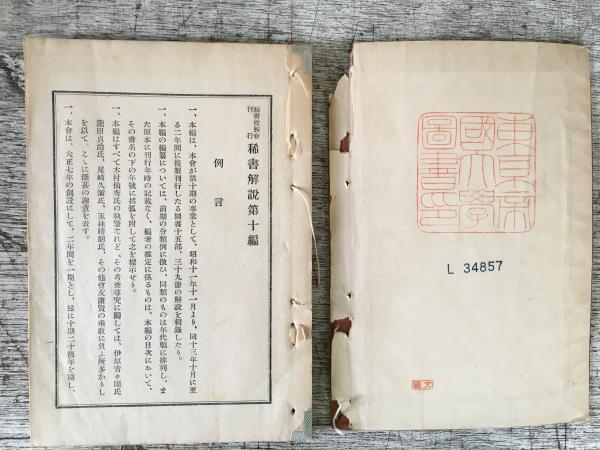 稀書複製會
刊行
稀書解說第十編
例言
一、本編は、本會が第十期の事業として、昭和十一年十一月より、同十三年十月に至
る二年間に複製刊行したる圖書十五部、三十九册の解說を輯錄したり。
一、本編の編纂については、前期の分類例に倣ひ、同類のものは年代順に排列し、ま
た原本に刊行年時の記載なく、編者の推定に係るものは、本編の目次において、
その書名の下の年號に括弧を附して之を標示せり。
一、本編はすべて木村仙秀氏の執筆なれど、その考査尋究に關しては、伊原青々園氏
瀧田貞治氏、尾崎久彌氏、玉林晴朗氏、その他會友諸賢の垂敎に負ふ所多かりし
を以て、こゝに深甚の謝意を表す。
一、本會は、大正七年の創設にして、二年間を一期とし、玆に十期二十箇年を閱し、
L 34857